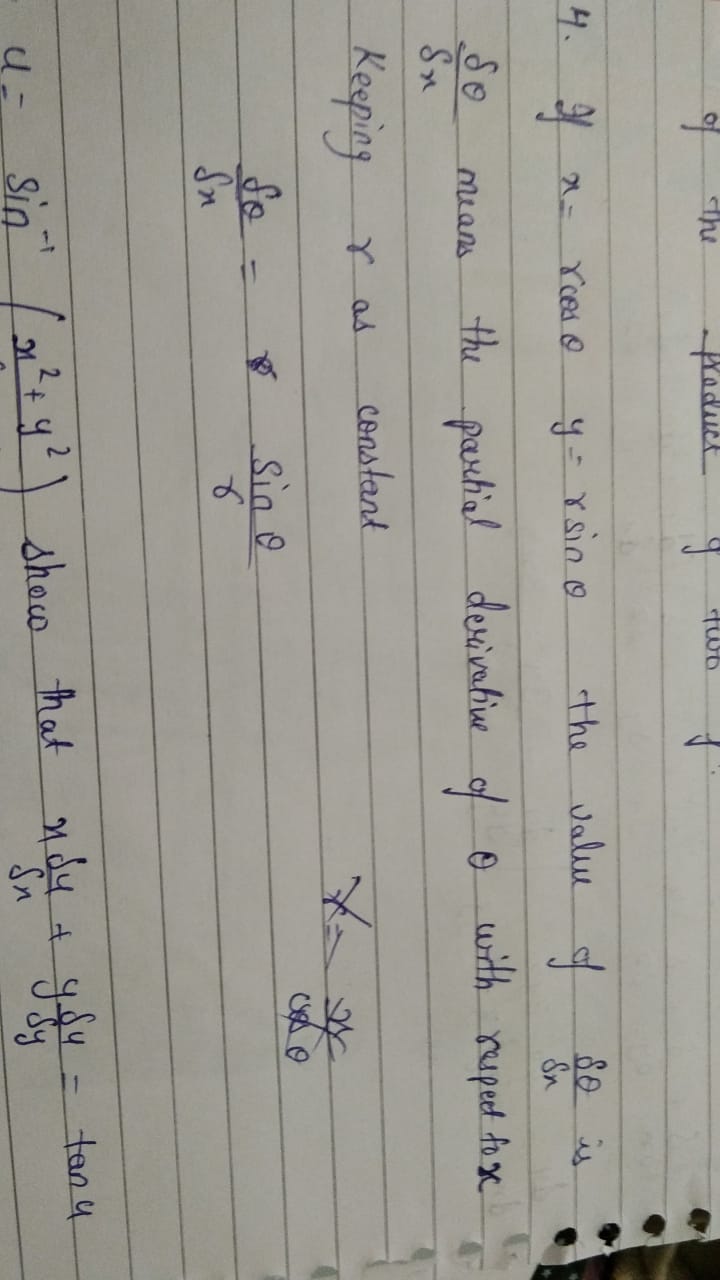 of the product of two
4. If x = r cos θ y = r sin θ the value of δθ/δx is
δθ/δx means the partial derivative of θ with respect to x
Keeping r as constant
δθ/δx = sin θ/r
u = sin⁻¹ (x² + y²) show that x δu/δx + y δu/δy = tan u